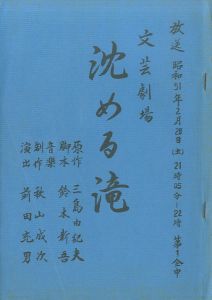 放送 昭和51年2月28日(土) 21時05分-22時 第1全中
文芸劇場
沈める滝
原作 三島由紀夫
脚本 鈴木新吾
音楽
制作 秋山成次
演出 前田充男